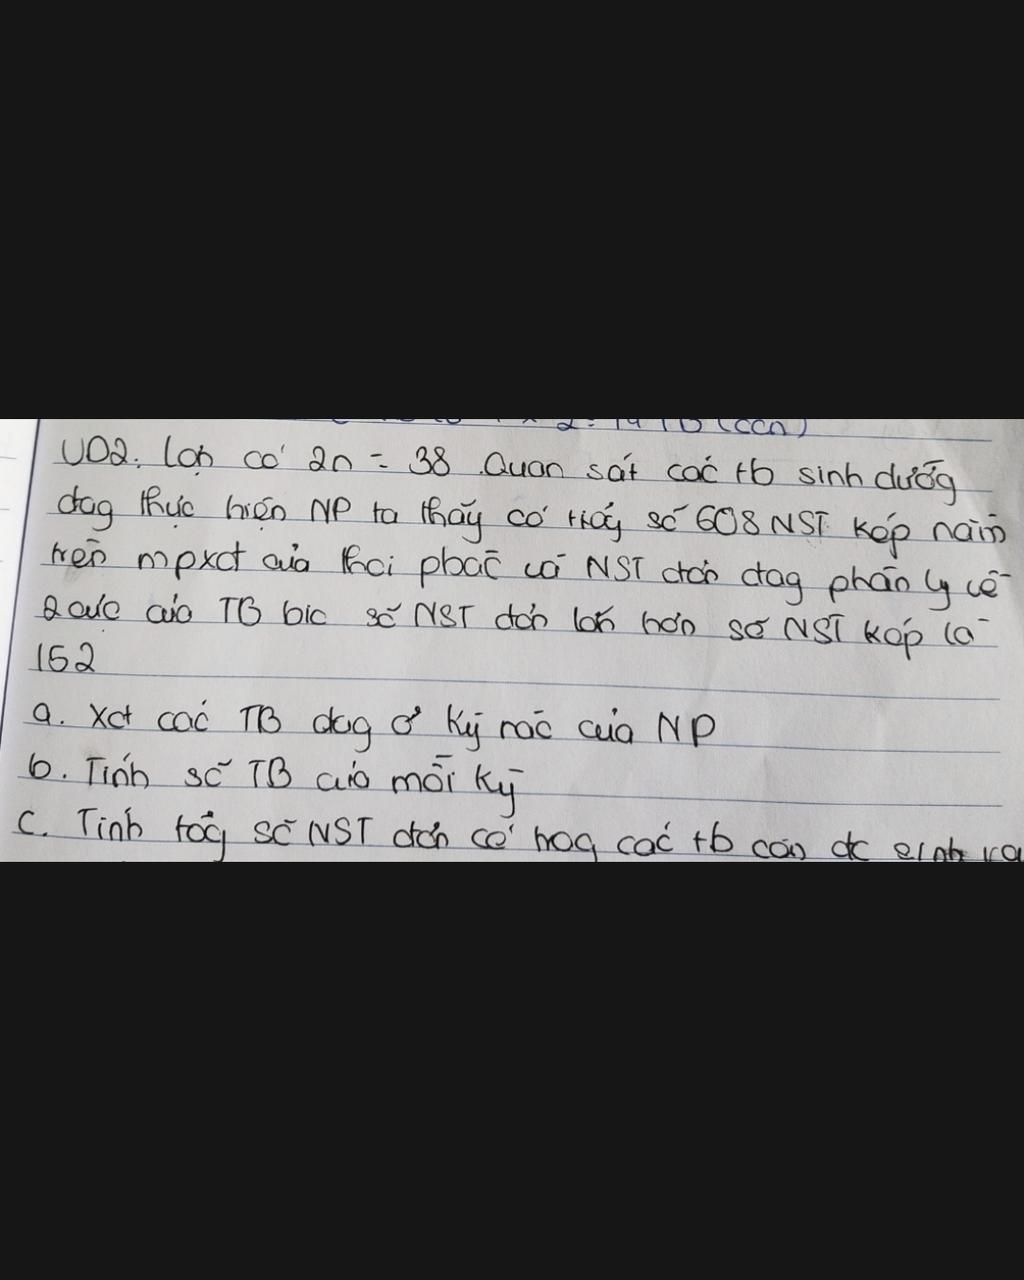 VD2. Lợn có 2n = 38 Quan sát các tb sinh dưỡng
đag thực hiện NP ta thấy có tổng số 608 NST kép nằm
trên mpxđ của thoi phaĉ và NST đơn đag phân ly về
2 cực của TB bic số NST đơn lớn hơn số NST kép là
152
a. Xđ các TB đag ở kỳ nào của NP
b. Tính số TB của mỗi kỳ
c. Tính tổg số NST đơn có trog các tb con đc sinh ra